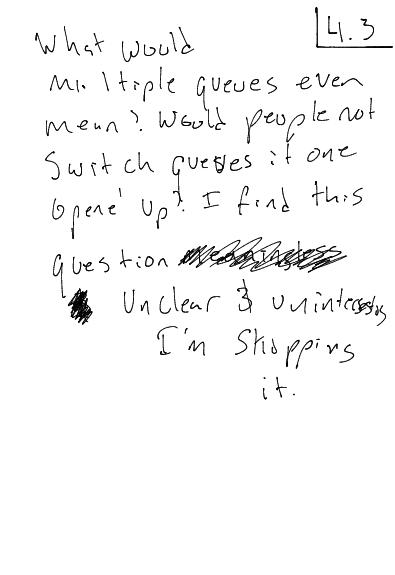 4.3
What would
multiple queues even
mean? Would people not
Switch queues if one
opened up? I find this
question
Unclear & uninteresting
I'm Skipping
it.